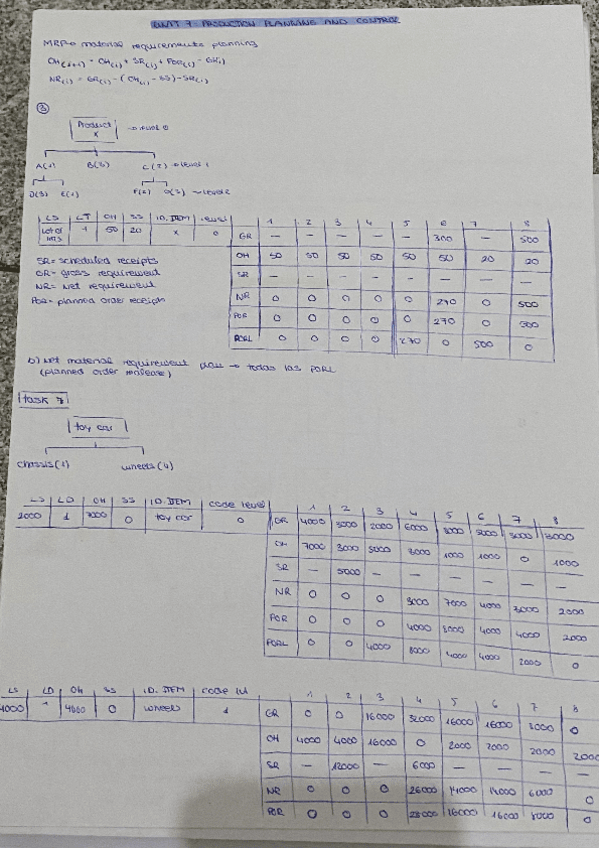 UNIT 7: PRODUCTION PLANNING AND CONTROL
MRP→ material requirements planning
OH(t+1) = OH(t) + SR(t) + POR(t) - GR(t)
NR(t) = GR(t) - (OH(t) - SS) - SR(t)
③
Product X → level 0
A(2) B(3) C(2) → level 1
D(3) E(1) F(2) G(3) → level 2
LS LT OH SS ID.ITEM level
Lot of lots 1 50 20 X 0
1 2 3 4 5 6 7 8
GR — — — — — 300 — 500
OH 50 50 50 50 50 50 20 20
SR — — — — — — — —
NR 0 0 0 0 0 270 0 500
POR 0 0 0 0 0 270 0 500
PORL 0 0 0 0 270 0 500 0
SR= scheduled receipts
GR= gross requirement
NR= net requirement
POR= planned order receipts
b) Net material requirement plan → todas las PORL
(planned order release)
Task 7
toy car
chassis(1) wheels(4)
LS LD OH SS ID.ITEM code level
2000 1 7000 0 toy car 0
1 2 3 4 5 6 7 8
GR 4000 3000 2000 6000 8000 5000 3000 3000
OH 7000 3000 5000 3000 1000 1000 0 1000
SR — 5000 — — — — — —
NR 0 0 0 3000 7000 4000 3000 2000
POR 0 0 0 4000 8000 4000 4000 2000
PORL 0 0 4000 8000 4000 4000 2000 0
LS LD OH SS ID.ITEM code lvl
4000 1 4000 0 wheels 1
1 2 3 4 5 6 7 8
GR 0 0 16000 32000 16000 16000 8000 0
OH 4000 4000 16000 0 2000 2000 2000 2000
SR — 12000 — 6000 — — — —
NR 0 0 0 26000 14000 14000 6000 0
POR 0 0 0 28000 16000 16000 8000 0